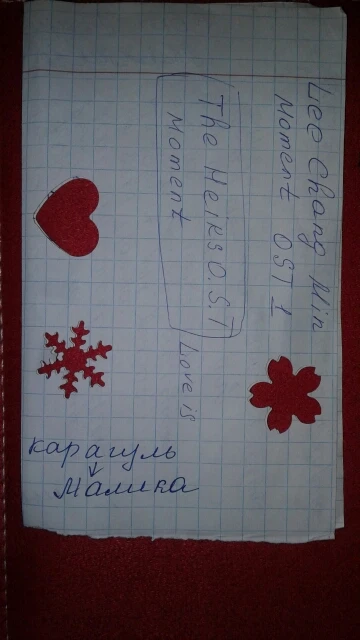 Lee Chang Min
Moment OST 1
The Heirs O.S.T
Moment
Love is
карагуль
Малика